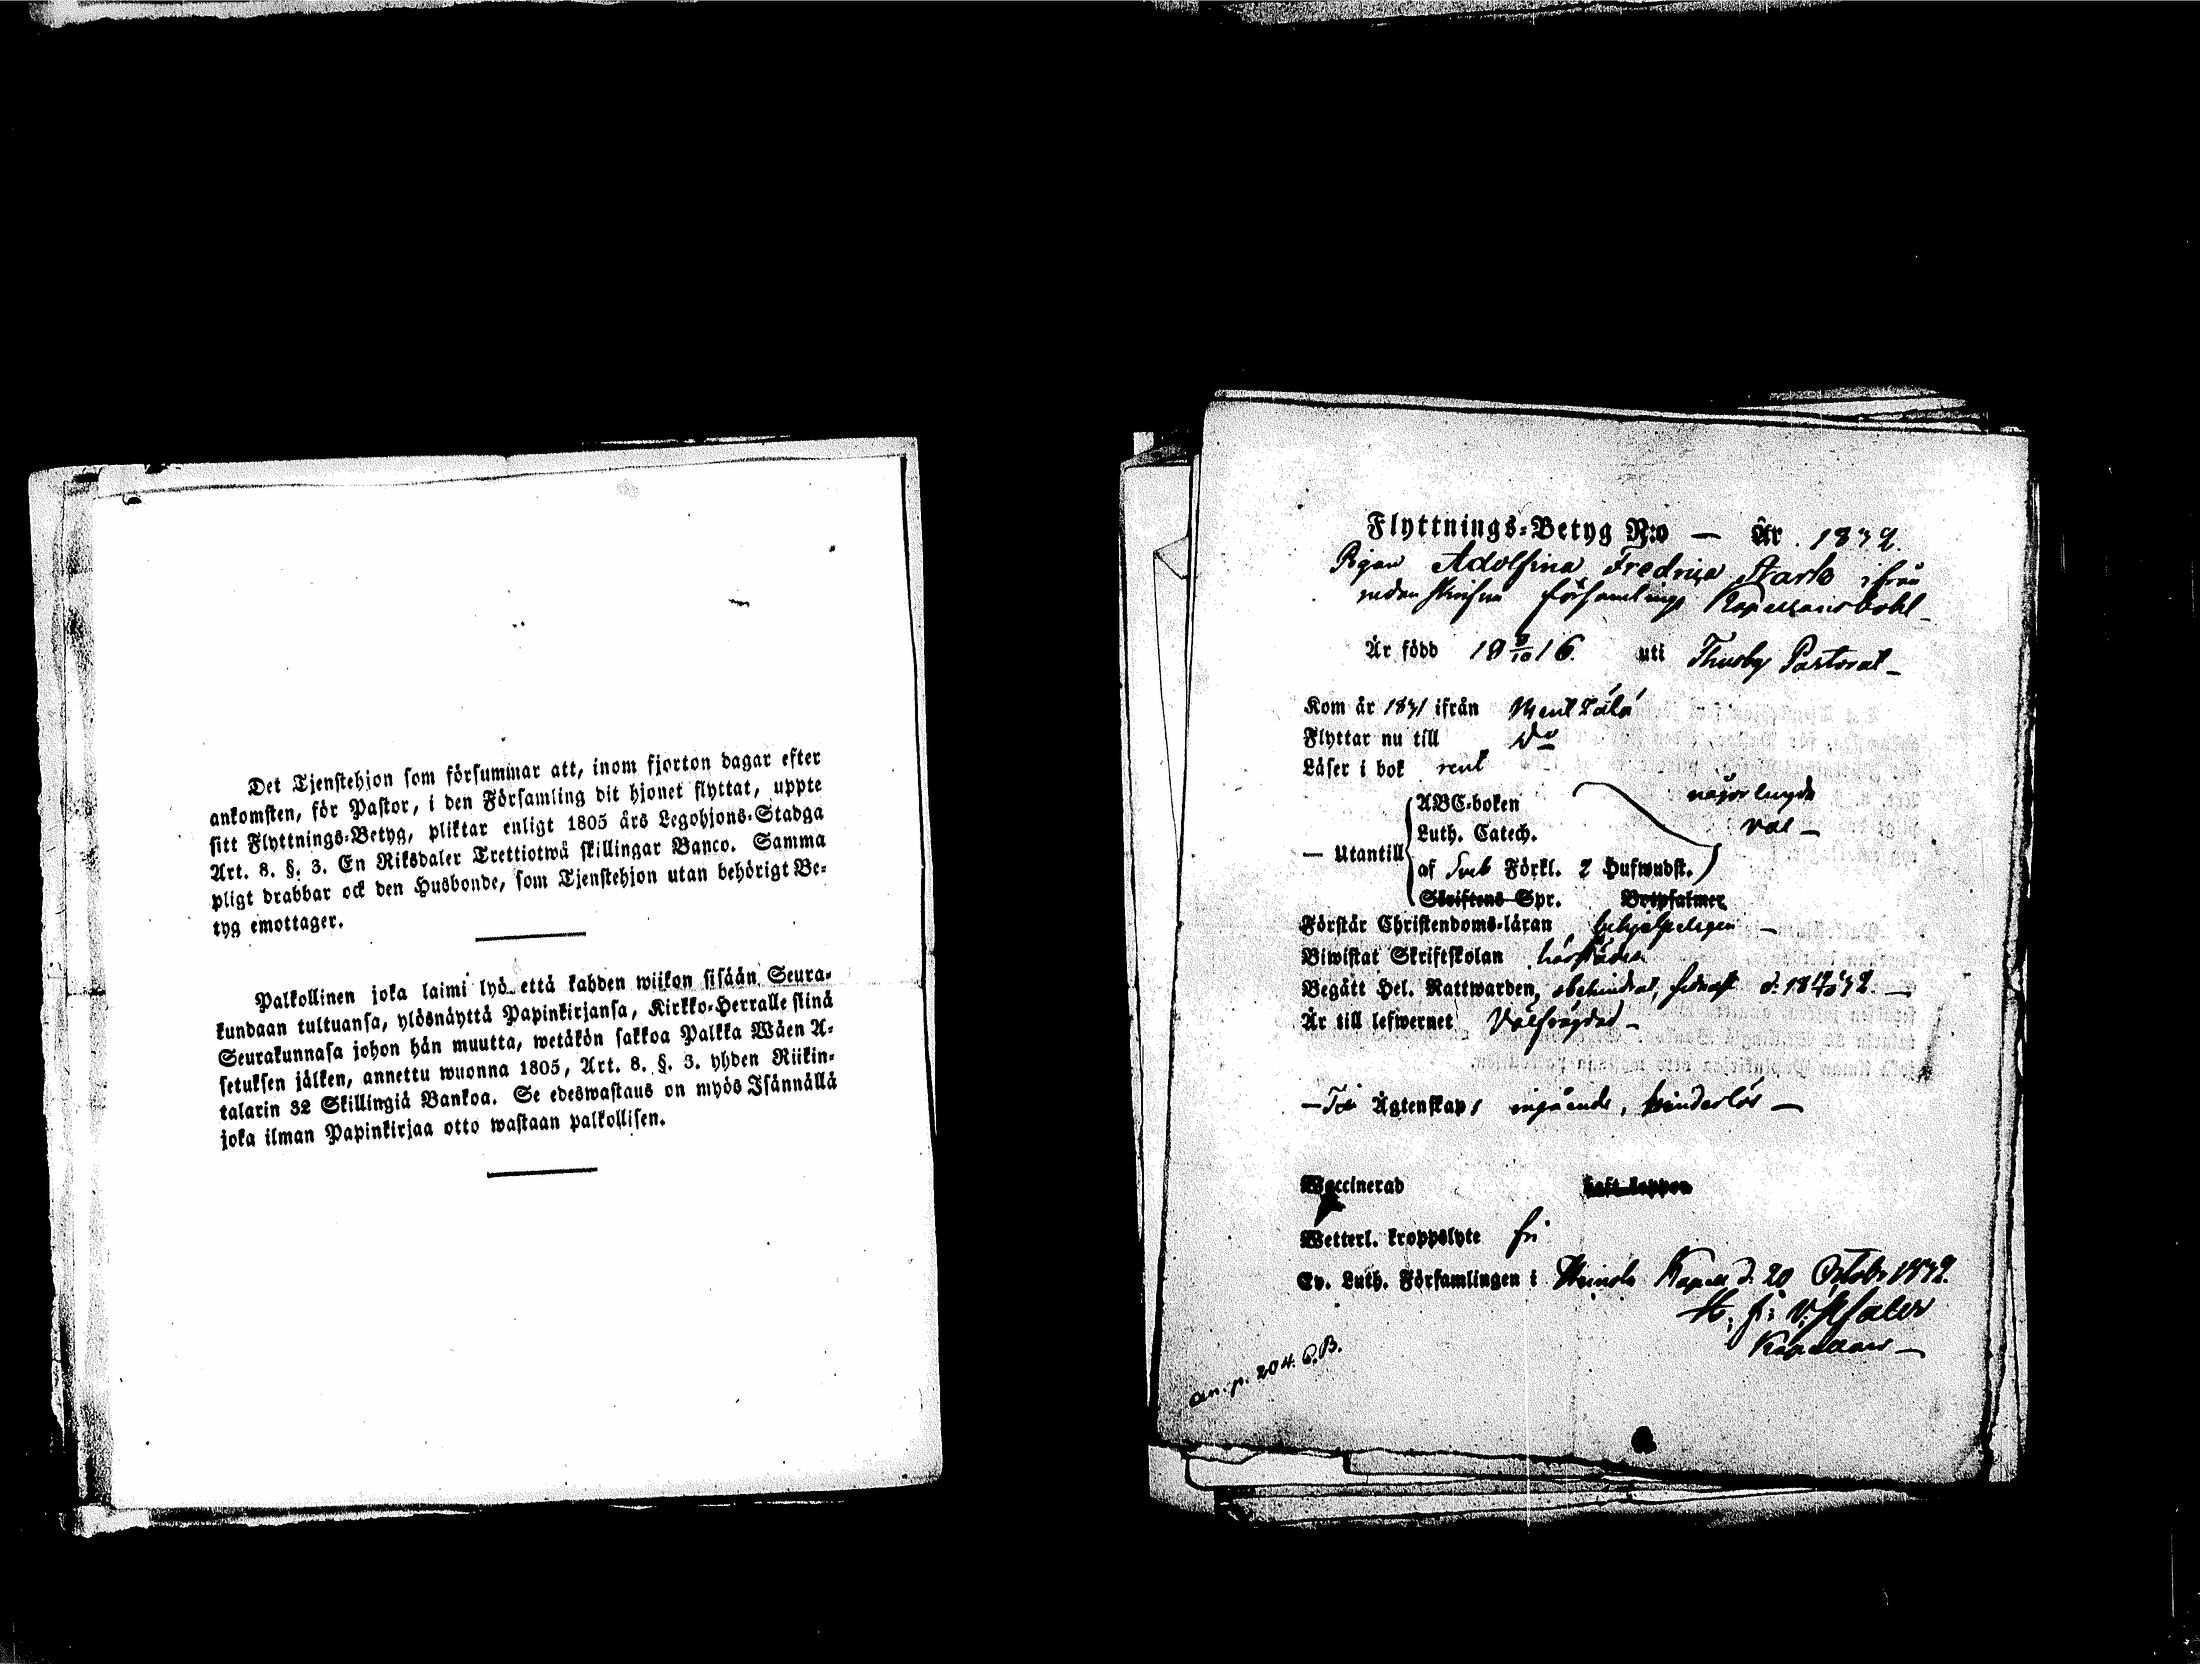 Det Tjenstehjon som försummar att, inom fjorton dagar efter
ankomsten, för Pastor, i den Församling dit hjonet flyttat, uppte
sitt Flyttnings-Betyg, pliktar enligt 1805 års Legohjons-Stadga
Art. 8. §. 3. En Riksdaler Trettiotwå skillingar Banco. Samma
pligt drabbar ock den Husbonde, som Tjenstehjon utan behörigt Be-
tyg emottager.
Palkollinen joka laimi lyö että kahden wiikon sisään Seura-
kundaan tultuansa, ylösnäyttä Papinkirjansa, Kirkko-Herralle siinä
Seurakunnasa johon hän muutta, wetäkön sakkoa Palkka Wäen A-
setuksen jälken, annettu wuonna 1805, Art. 8. §. 3. yhden Riikin-
talarin 32 Skillingiä Bankoa. Se edeswastaus on myös Isännällä
joka ilman Papinkirjaa otto wastaan palkollisen.
Flyttnings-Betyg N:o — År 1832.
Pigan Adolfina Fredrica Stark ifrån
församlings Kapellansbohl
Är född 18 9/10 16. uti Thusby Pastorat
Kom år 1831 ifrån Mentzälä
Flyttar nu till Do
Läser i bok rent
ABC-boken någorlunda
Luth. Catech. väl
— Utantill
af Sveb Förkl. 2 Hufwudst.
Skriftens Spr. Botpsalmer
Förstår Christendoms-läran behjelpeligen
Biwistat Skriftskolan härstädes
Begått Hel. Nattwarden, obehindrat, sednast d.
Är till lefwernet Välfrägdad
Ägtenskaps ingående, hinderlös
Waccinerad haft koppor
Wetterl. kroppslyte fri
Ev. Luth. Församlingen i Kapell d. 20 Octobr 1832.
Kapellan
an. p. 204. C.B.